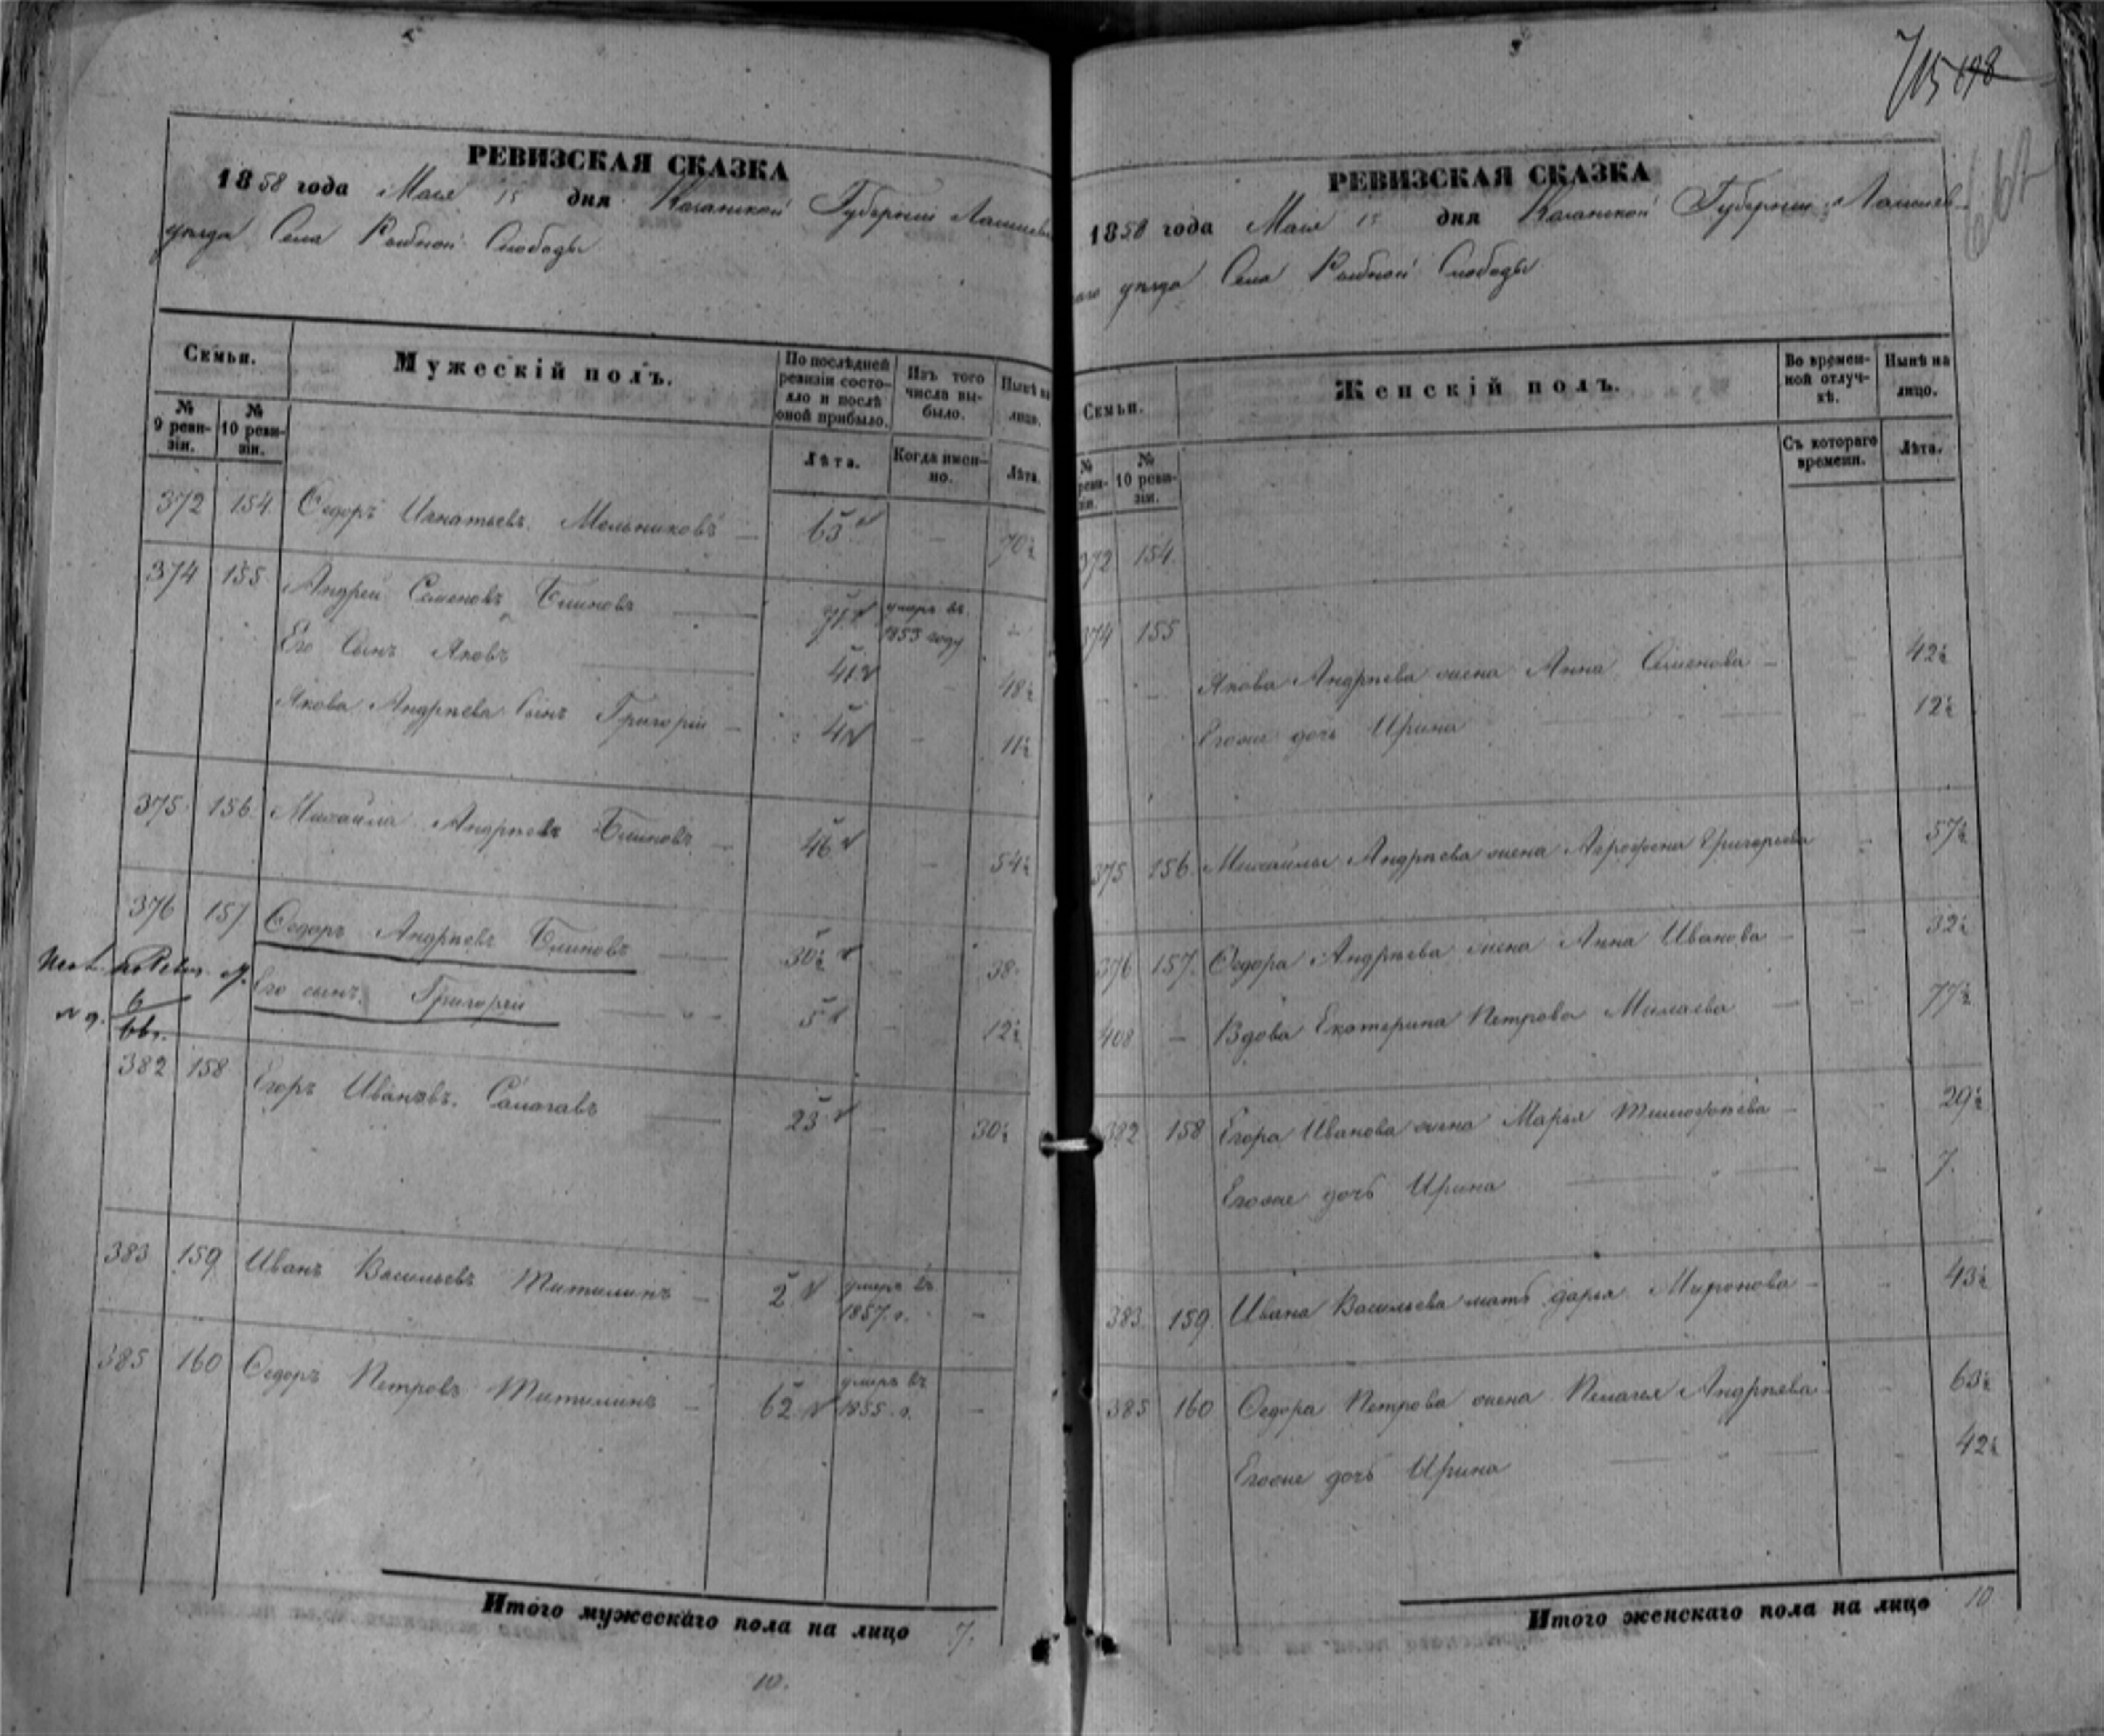 715 698
РЕВИЗСКАЯ СКАЗКА
1858 года Мая 15 дня Казанской Губерніи Лаишев
уѣзда Села Рыбной Слободы
Семьи.
Мужескій полъ.
По послѣдней ревизіи состояло и послѣ оной прибыло.
Изъ того числа выбыло.
Нынѣ на лицо.
№ 9 ревизіи.
№ 10 ревизіи.
Лѣта.
Когда именно.
Лѣта.
372 154 Ѳедоръ Игнатьевъ Мельниковъ — 63 — 70½
374 155 Андрей Семеновъ Блиновъ — 71 умеръ въ 1853 году —
Его Сынъ Яковъ — 41 — 48½
Якова Андреева Сынъ Григорій — 4 — 11½
375 156 Михаила Андреевъ Блиновъ — 46 — 54½
376 157 Ѳедоръ Андреевъ Блиновъ — 30½ — 38
Его сынъ Григорій — 5 — 12½
№ 9.
382 158 Егоръ Ивановъ — 23 — 30½
383 159 Иванъ Васильевъ Митилинъ — 2 умеръ въ 1857 г. —
385 160 Ѳедоръ Петровъ Митилинъ — 62 умеръ въ 1855 г. —
Итого мужескаго пола на лицо 7.
10.
РЕВИЗСКАЯ СКАЗКА
1858 года Мая 15 дня Казанской Губерніи Лаишев-
аго уѣзда Села Рыбной Слободы
Семьи.
Женскій полъ.
Во временной отлучкѣ.
Нынѣ на лицо.
№ ревизіи.
№ 10 ревизіи.
Съ котораго времени.
Лѣта.
372 154
374 155
Якова Андреева жена Анна Семенова — 42½
Егоже дочь Ирина — 12½
375 156 Михаилы Андреева жена Агрофена Григорьева — 57½
376 157 Ѳедора Андреева жена Анна Иванова — 32½
408 — Вдова Екатерина Петрова Милаева — 77½
382 158 Егора Иванова жена Марья Тимофеева — 29½
Егоже дочь Ирина — 7.
383 159 Ивана Васильева мать Дарья Миронова — 43½
385 160 Ѳедора Петрова жена Пелагея Андреева — 63½
Егоже дочь Ирина — 42½
Итого женскаго пола на лицо 10